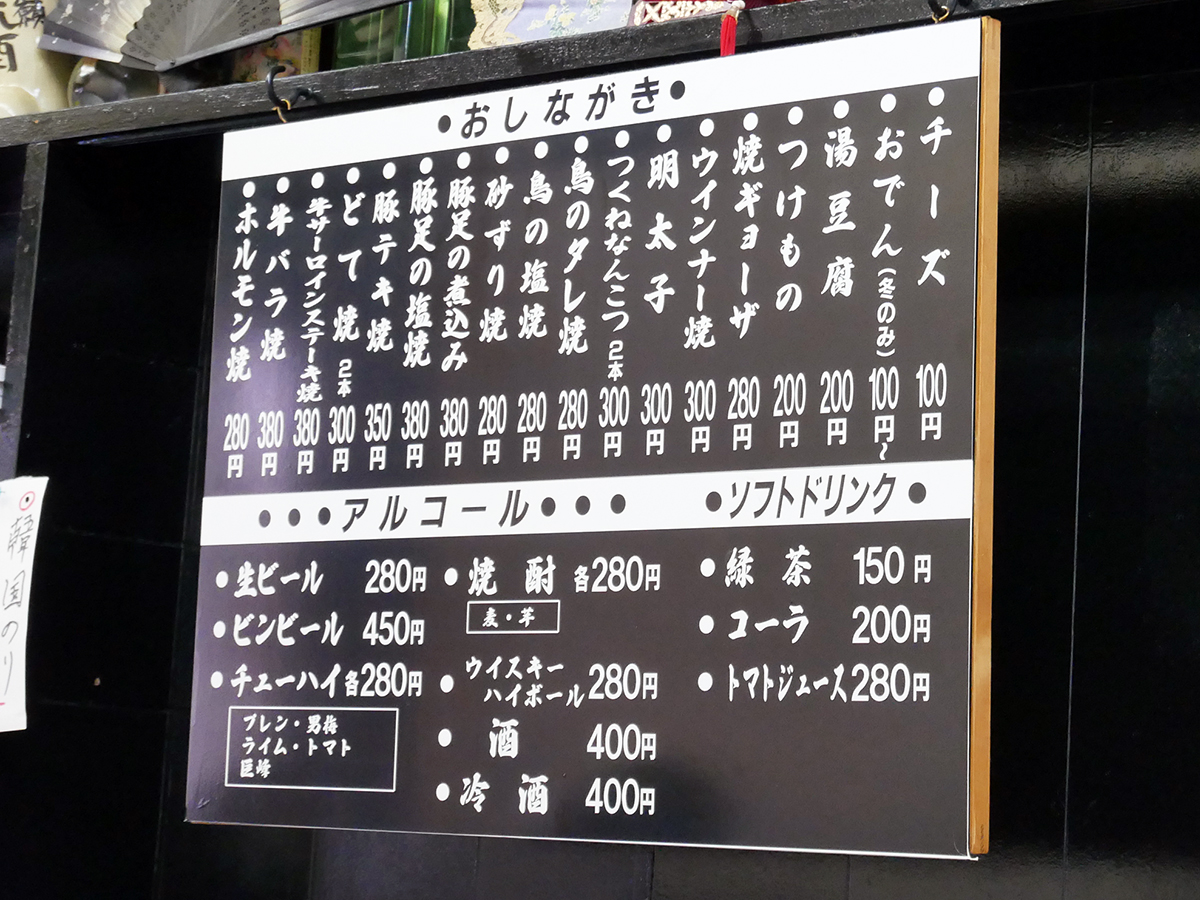 •おしながき•
●チーズ 100円
●おでん(冬のみ) 100円~
●湯豆腐 200円
●つけもの 200円
●焼ギョーザ 280円
●ウインナー焼 300円
●明太子 300円
●つくねなんこつ2本 300円
●鳥のタレ焼 280円
●鳥の塩焼 280円
●砂ずり焼 280円
●豚足の煮込み 380円
●豚足の塩焼 380円
●豚テキ焼 350円
●どて焼2本 300円
●牛サーロインステーキ焼 380円
●牛バラ焼 380円
●ホルモン焼 280円
•••アルコール•••
●生ビール 280円
●ビンビール 450円
●チューハイ各280円
プレン・男梅
ライム・トマト
巨峰
●焼酎 各280円
麦・芋
●ウイスキー
ハイボール280円
●酒 400円
●冷酒 400円
•ソフトドリンク•
●緑茶 150円
●コーラ 200円
●トマトジュース280円
韓国のり
酒